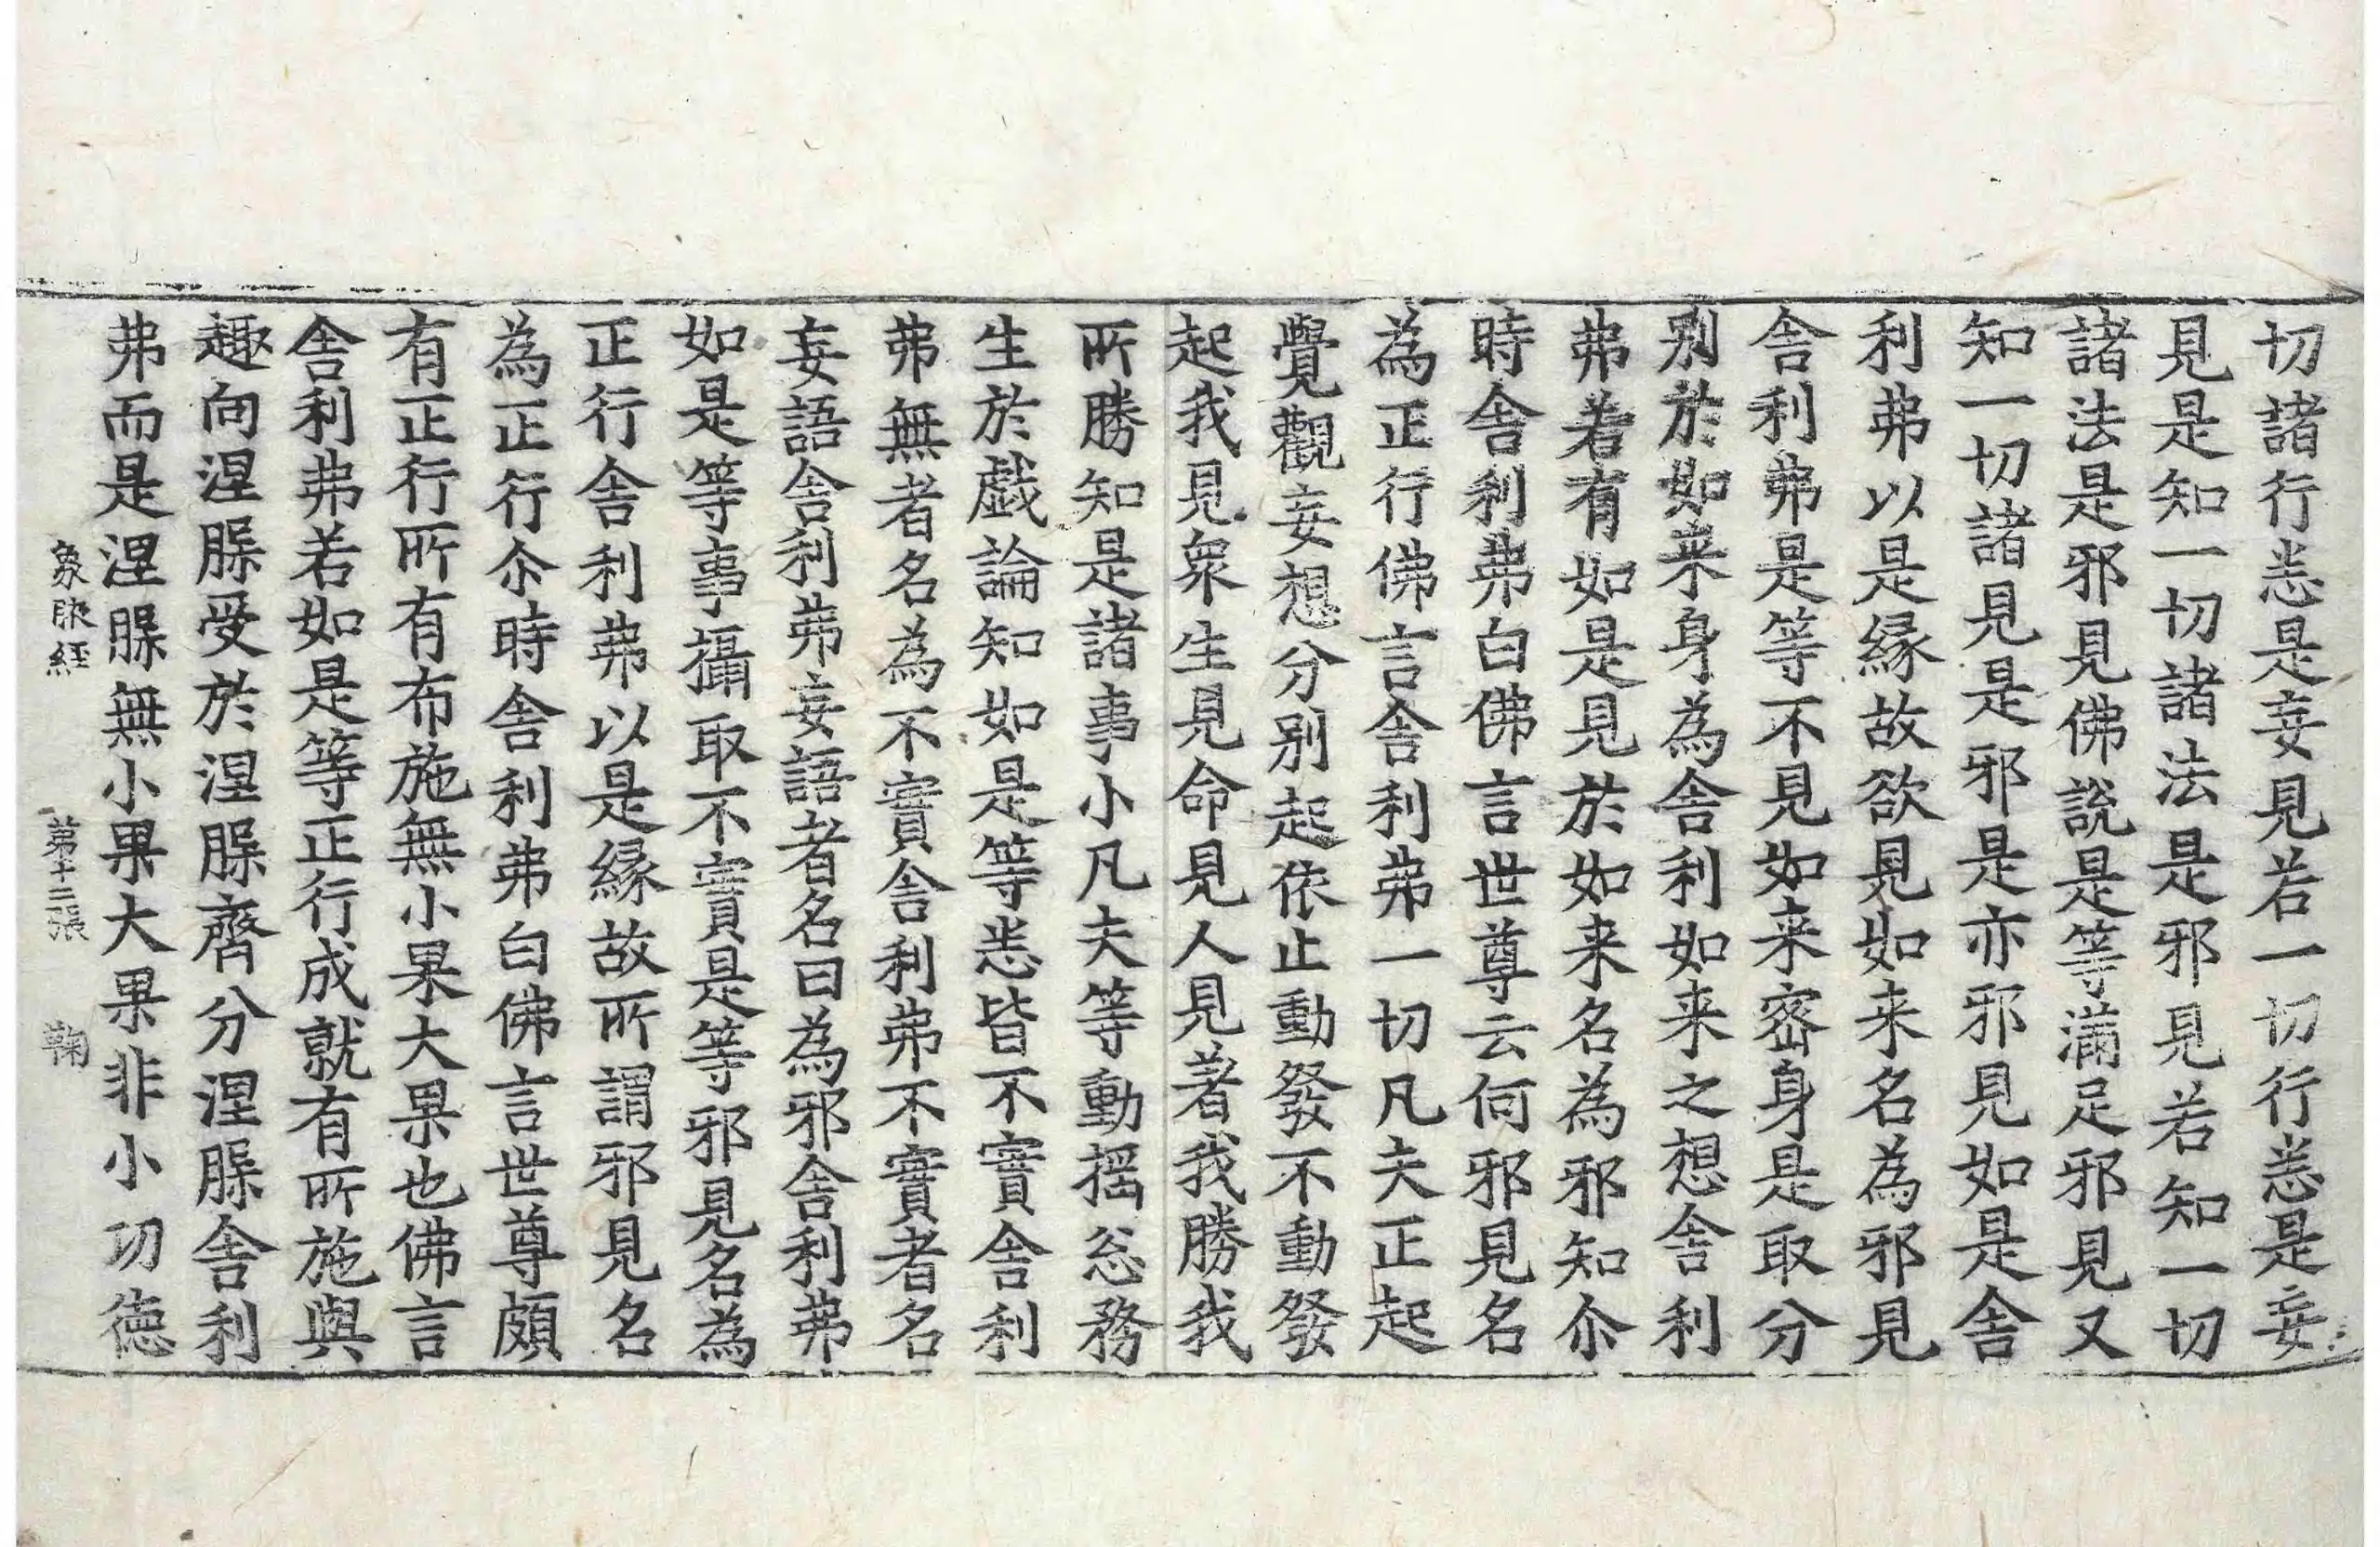 切諸行悉是妄見若一切行悉是妄
見是知一切諸法是邪見若知一切
諸法是邪見佛說是等滿足邪見又
知一切諸見是邪是亦邪見如是舍
利弗以是緣故欲見如来名為邪見
舍利弗是等不見如来密身是取分
别於如来身為舍利如来之想舍利
弗若有如是見於如来名為邪知尒
時舍利弗白佛言世尊云何邪見名
為正行佛言舍利弗一切凡夫正起
覺觀妄想分别起依止動發不動發
起我見衆生見命見人見著我勝我
所勝知是諸事小凡夫等動搖忩務
生於戲論知如是等悉皆不實舍利
弗無者名為不實舍利弗不實者名
妄語舍利弗妄語者名曰為邪舍利弗
如是等事攝取不實是等邪見名為
正行舍利弗以是緣故所謂邪見名
為正行尒時舍利弗白佛言世尊頗
有正行所有布施無小果大果也佛言
舍利弗若如是等正行成就有所施與
趣向涅槃受於涅槃齊分涅槃舍利
弗而是涅槃無小果大果非小功德
象腋經 第十二張 鞠